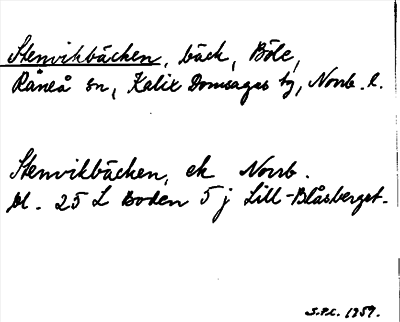 Stenvikbäcken, bäck, Böle,
Råneå sn, Kalix Domsagas tg, Norrb. l.
Stenvikbäcken, ek Norrb.
bl. 25 L Boden 5 j Lill-Blåsberget.
S.P.L. 1959.